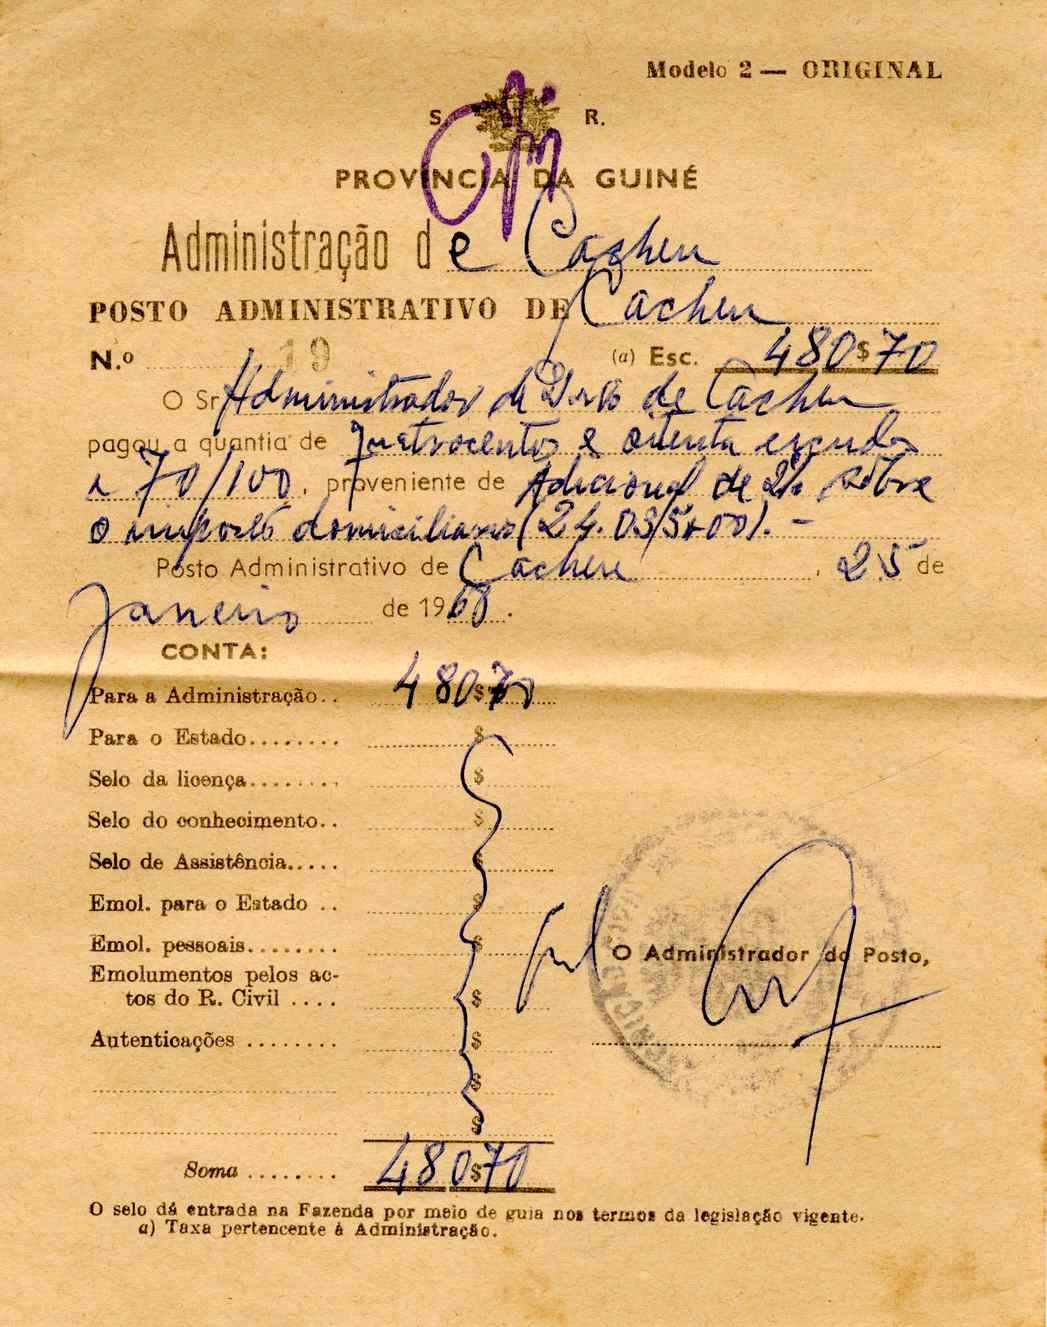 Modelo 2 — ORIGINAL
S. R.
PROVÍNCIA DA GUINÉ
Administração de Cacheu
POSTO ADMINISTRATIVO DE Cacheu
N.º 19 (a) Esc. 480$70
O Sr Administrador de de Cacheu
pagou a quantia de quatrocentos e oitenta escudos
e 70/100, proveniente de Adicional de 2% sôbre
o imposto domiciliario (24.035$00). —
Posto Administrativo de Cacheu, 25 de
Janeiro de 1968.
CONTA:
Para a Administração.. 480$70
Para o Estado........ $
Selo da licença........ $
Selo do conhecimento.. $
Selo de Assistência..... $
Emol. para o Estado .. $
Emol. pessoais........ $
Emolumentos pelos ac-
tos do R. Civil .... $
O Administrador do Posto,
Autenticações ........ $
$
$
Soma ........ 480$70
O selo dá entrada na Fazenda por meio de guia nos termos da legislação vigente.
a) Taxa pertencente à Administração.